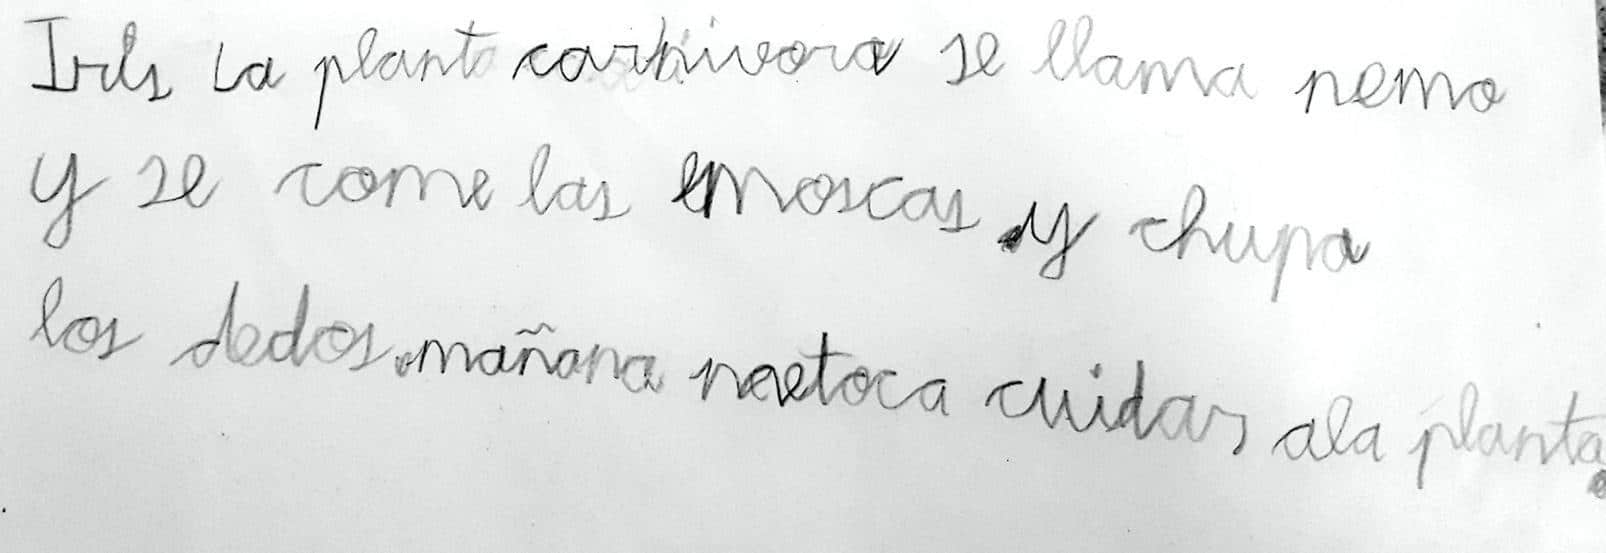 Iris La planta carnivora se llama nemo
y se come las moscas y chupa
los dedos. mañana me toca cuidar ala planta.